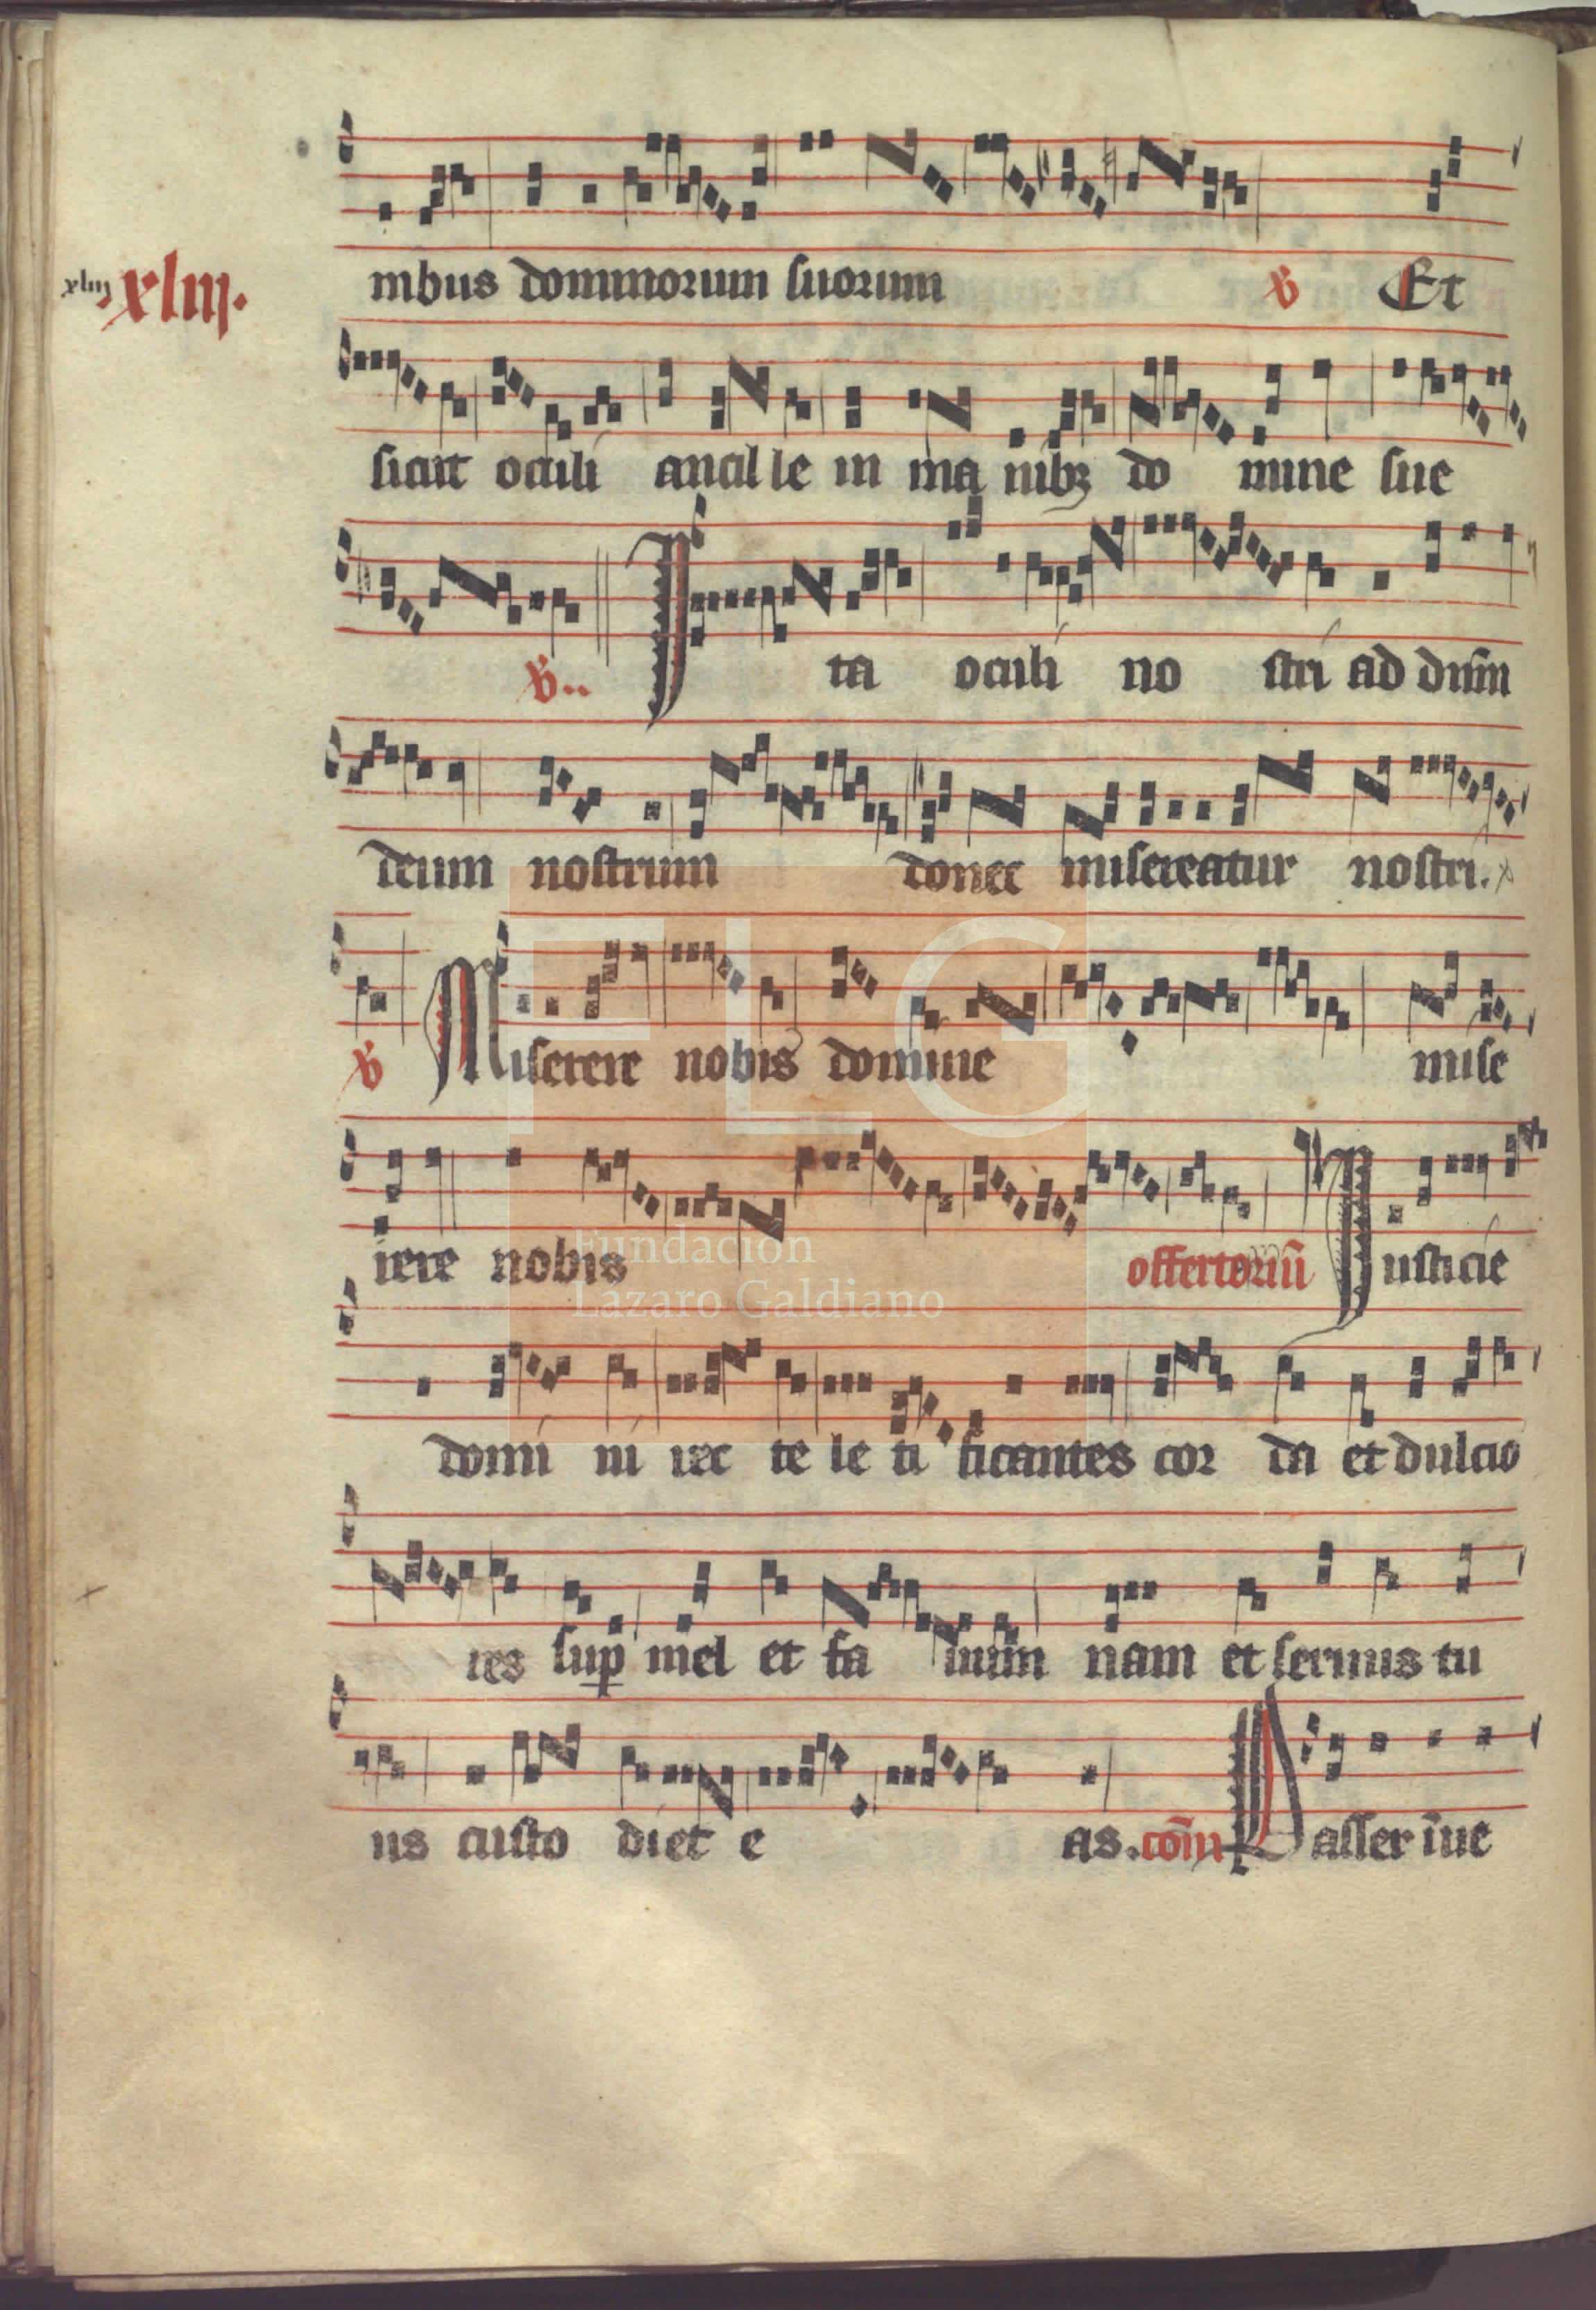 xliiij xliiij.
nibus dominorum suorum ℣ Et
sicut oculi ancil le in ma nibꝫ do mine sue
℣.. Ita oculi no stri ad dnm̄
deum nostrum donec misereatur nostri.
℣ Miserere nobis domine mise
rere nobis offertoriū Iusticie
domi ni rec te le ti ficantes cor da et dulcio
res suꝑ mel et fa uum nam et seruus tu
us custo diet e as. com̄ Passer īue
FLG
Fundación
Lázaro Galdiano